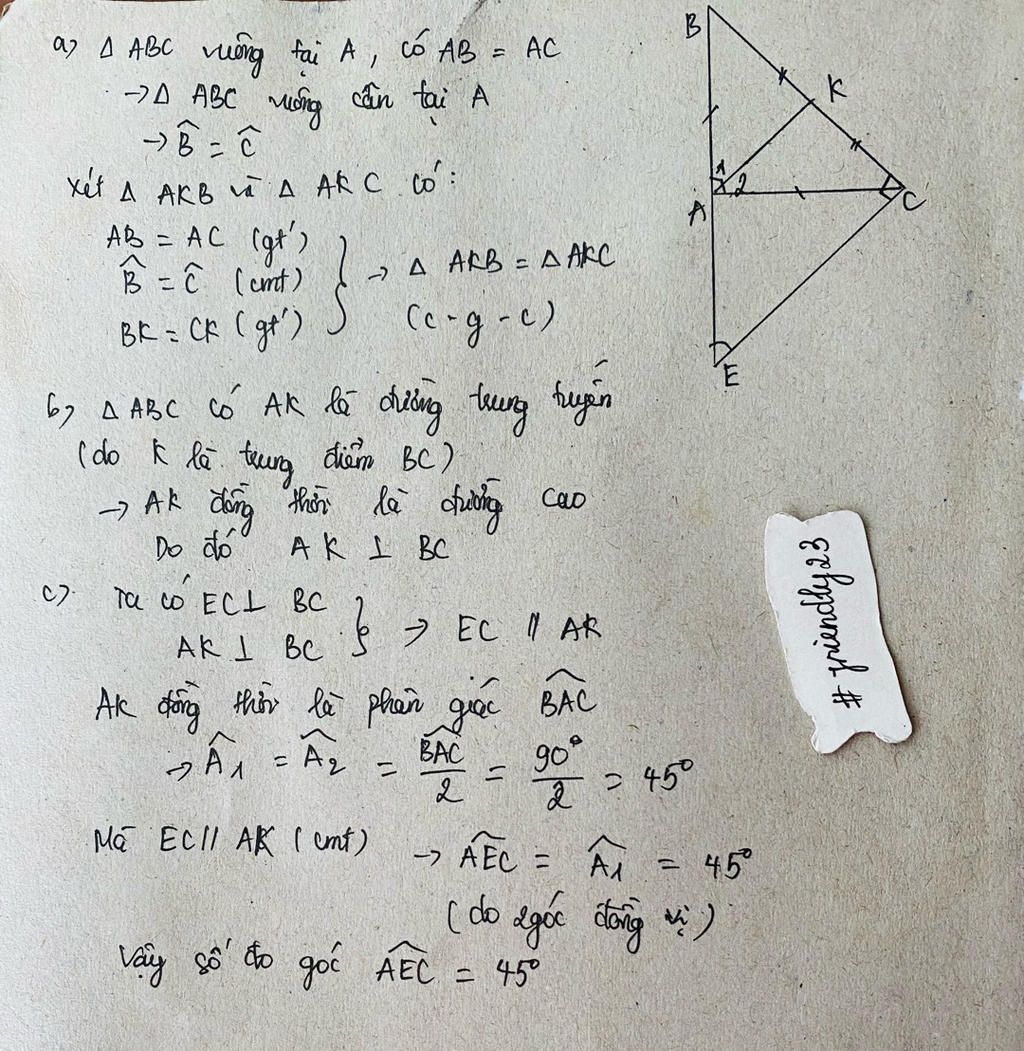 a) Δ ABC vuông tại A, có AB = AC
→ Δ ABC vuông cân tại A
→ B̂ = Ĉ
Xét Δ AKB và Δ AKC có:
AB = AC (gt)
B̂ = Ĉ (cmt)
BK = CK (gt)
→ Δ AKB = Δ AKC
(c - g - c)
b) Δ ABC có AK là đường trung tuyến
(do K là trung điểm BC)
→ AK đồng thời là đường cao
Do đó AK ⊥ BC
c) Ta có EC ⊥ BC
AK ⊥ BC
→ EC // AK
AK đồng thời là phân giác \widehat{BAC}
→ Â1 = Â2 = \widehat{BAC}/2 = 90°/2 = 45°
Mà EC // AK (cmt) → \widehat{AEC} = Â1 = 45°
(do 2 góc đồng vị)
Vậy số đo góc \widehat{AEC} = 45°
B
K
1
2
A
C
E
# friendly23